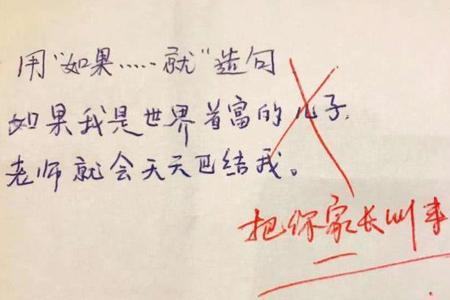 用“如果……就”造句
如果我是世界首富的儿子,
老师就会天天巴结我。
把你家长叫来